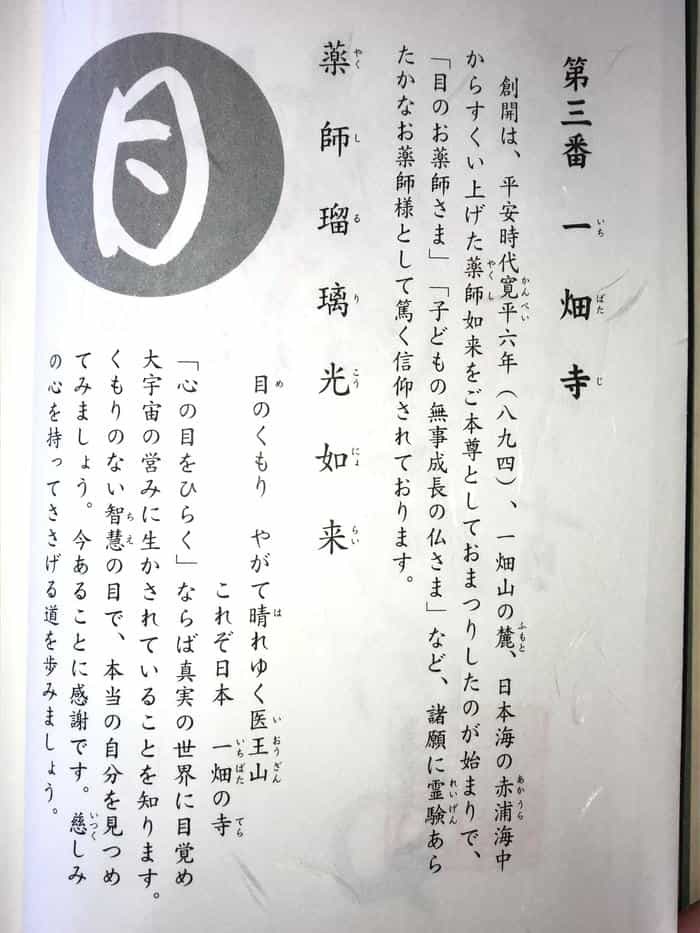 第三番 一畑寺
創開は、平安時代寛平六年（八九四）、一畑山の麓、日本海の赤浦海中
からすくい上げた薬師如来をご本尊としておまつりしたのが始まりで、
「目のお薬師さま」「子どもの無事成長の仏さま」など、諸願に霊験あら
たかなお薬師様として篤く信仰されております。
薬師瑠璃光如来
目
目のくもり やがて晴れゆく医王山
これぞ日本 一畑の寺
「心の目をひらく」ならば真実の世界に目覚め
大宇宙の営みに生かされていることを知ります。
くもりのない智慧の目で、本当の自分を見つめ
てみましょう。今あることに感謝です。慈しみ
の心を持ってささげる道を歩みましょう。